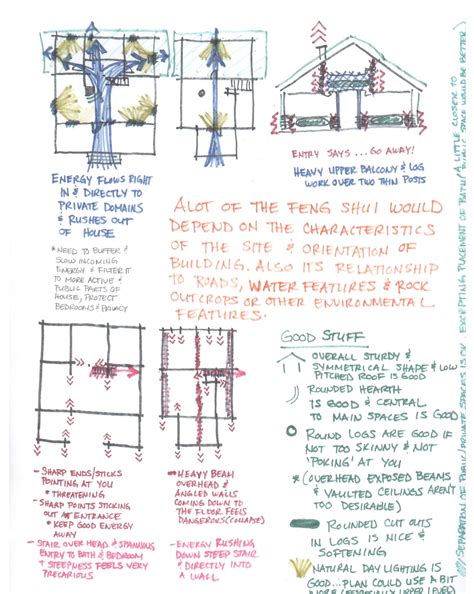 ENERGY FLOWS RIGHT
IN & DIRECTLY TO
PRIVATE DOMAINS
& RUSHES OUT
OF HOUSE
*NEED TO BUFFER &
SLOW INCOMING
ENERGY & FILTER IT
TO MORE ACTIVE &
PUBLIC PARTS OF
HOUSE, PROTECT
BEDROOMS & PRIVACY
ENTRY SAYS...GO AWAY!
HEAVY UPPER BALCONY & LOG
WORK OVER TWO THIN POSTS
ALOT OF THE FENG SHUI WOULD
DEPEND ON THE CHARACTERISTICS
OF THE SITE & ORIENTATION OF
BUILDING. ALSO ITS RELATIONSHIP
TO ROADS, WATER FEATURES & ROCK
OUTCROPS OR OTHER ENVIRONMENTAL
FEATURES.
- SHARP ENDS/STICKS
POINTING AT YOU
* THREATENING
- SHARP POINTS STICKING
OUT AT ENTRANCE
* KEEP GOOD ENERGY
AWAY
- STAIR OVER HEAD & SPANNING
ENTRY TO BATH & BEDROOM
& STEEPNESS FEELS VERY
PRECARIOUS
- HEAVY BEAM
OVERHEAD &
ANGLED WALLS
COMING DOWN TO
THE FLOOR FEELS
DANGEROUS (COLLAPSE)
- ENERGY RUSHING
DOWN STEEP STAIR
& DIRECTLY INTO
A WALL
GOOD STUFF
OVERALL STURDY &
SYMMETRICAL SHAPE & LOW
PITCHED ROOF IS GOOD
ROUNDED HEARTH
IS GOOD & CENTRAL
TO MAIN SPACES IS GOOD
ROUND LOGS ARE GOOD IF
NOT TOO SKINNY & NOT
'POKING' AT YOU
*(OVERHEAD EXPOSED BEAMS
& VAULTED CEILINGS AREN'T
TOO DESIRABLE)
ROUNDED CUT OUTS
IN LOGS IS NICE &
SOFTENING
NATURAL DAY LIGHTING IS
GOOD...PLAN COULD USE A BIT
MORE (ESPECIALLY UPPER LEVEL)
SEPARATION OF PUBLIC/PRIVATE SPACES IS OK EXCEPTING PLACEMENT OF BATH (A LITTLE CLOSER TO
PUBLIC SPACE WOULD BE BETTER)